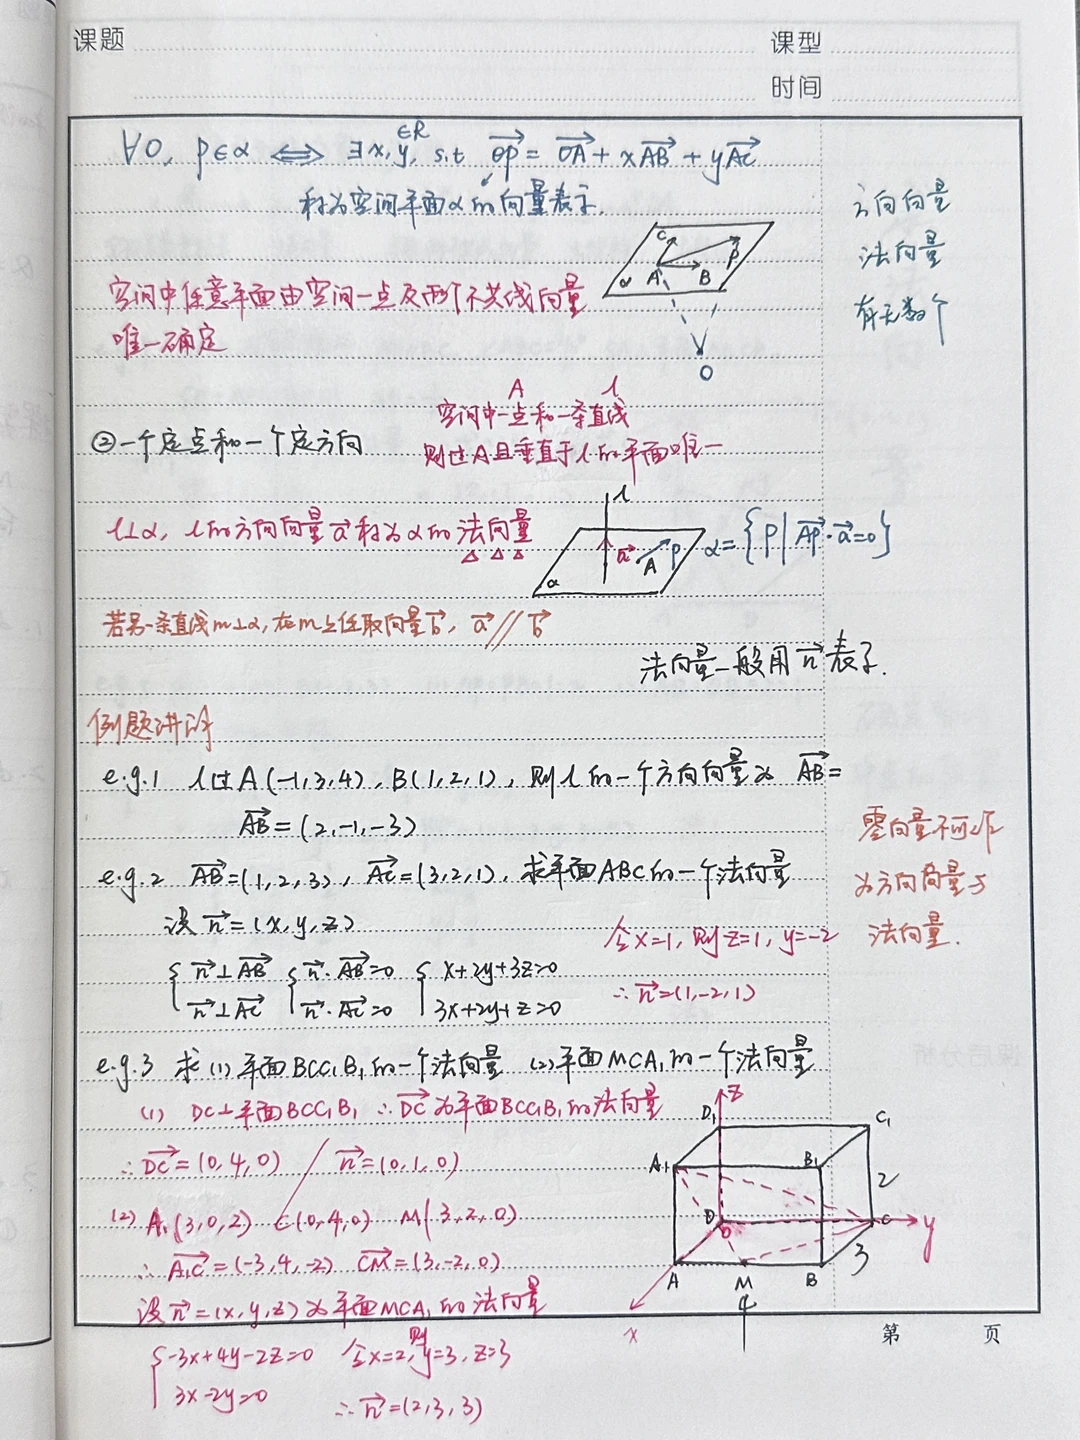 课题
课型
时间
∀O, P∈α ⟺ ∃x,y∈R, s.t. \overrightarrow{OP} = \overrightarrow{OA} + x\overrightarrow{AB} + y\overrightarrow{AC}
称为空间平面α的向量表示.
方向向量
法向量
有无数个
空间中任意平面由空间一点及两个不共线向量
唯一确定
C
α A B P
O
②一个定点和一个定方向
A l
空间中一点和一条直线
则过A且垂直于l的平面唯一
l⊥α, l的方向向量\vec{a}称为α的法向量
l
\vec{a} A P
α
α={P|\overrightarrow{AP}·\vec{a}=0}
若另一条直线m⊥α, 在m上任取向量\vec{b}, \vec{a}//\vec{b}
法向量一般用\vec{n}表示.
例题讲解
e.g.1 l过A(-1,3,4), B(1,2,1), 则l的一个方向向量为 \overrightarrow{AB}=
\overrightarrow{AB}=(2,-1,-3)
零向量不可作
为方向向量与
法向量.
e.g.2 \overrightarrow{AB}=(1,2,3), \overrightarrow{AC}=(3,2,1), 求平面ABC的一个法向量
设\vec{n}=(x,y,z)
{\vec{n}⊥\overrightarrow{AB} {\vec{n}·\overrightarrow{AB}=0 {x+2y+3z=0
\vec{n}⊥\overrightarrow{AC} \vec{n}·\overrightarrow{AC}=0 3x+2y+z=0
令x=1, 则z=1, y=-2
∴\vec{n}=(1,-2,1)
e.g.3 求(1)平面BCC₁B₁的一个法向量 (2)平面MCA₁的一个法向量
(1) DC⊥平面BCC₁B₁ ∴\overrightarrow{DC}为平面BCC₁B₁的法向量
∴\overrightarrow{DC}=(0,4,0) / \vec{n}=(0,1,0)
(2) A₁(3,0,2) C(0,4,0) M(3,2,0)
∴\overrightarrow{A₁C}=(-3,4,-2) \overrightarrow{CM}=(3,-2,0)
设\vec{n}=(x,y,z)为平面MCA₁的法向量
{-3x+4y-2z=0 令x=2,则y=3,z=3
3x-2y=0
∴\vec{n}=(2,3,3)
z
D₁ C₁
A₁ B₁
2
D O C y
3
A M B
4
x
第 页